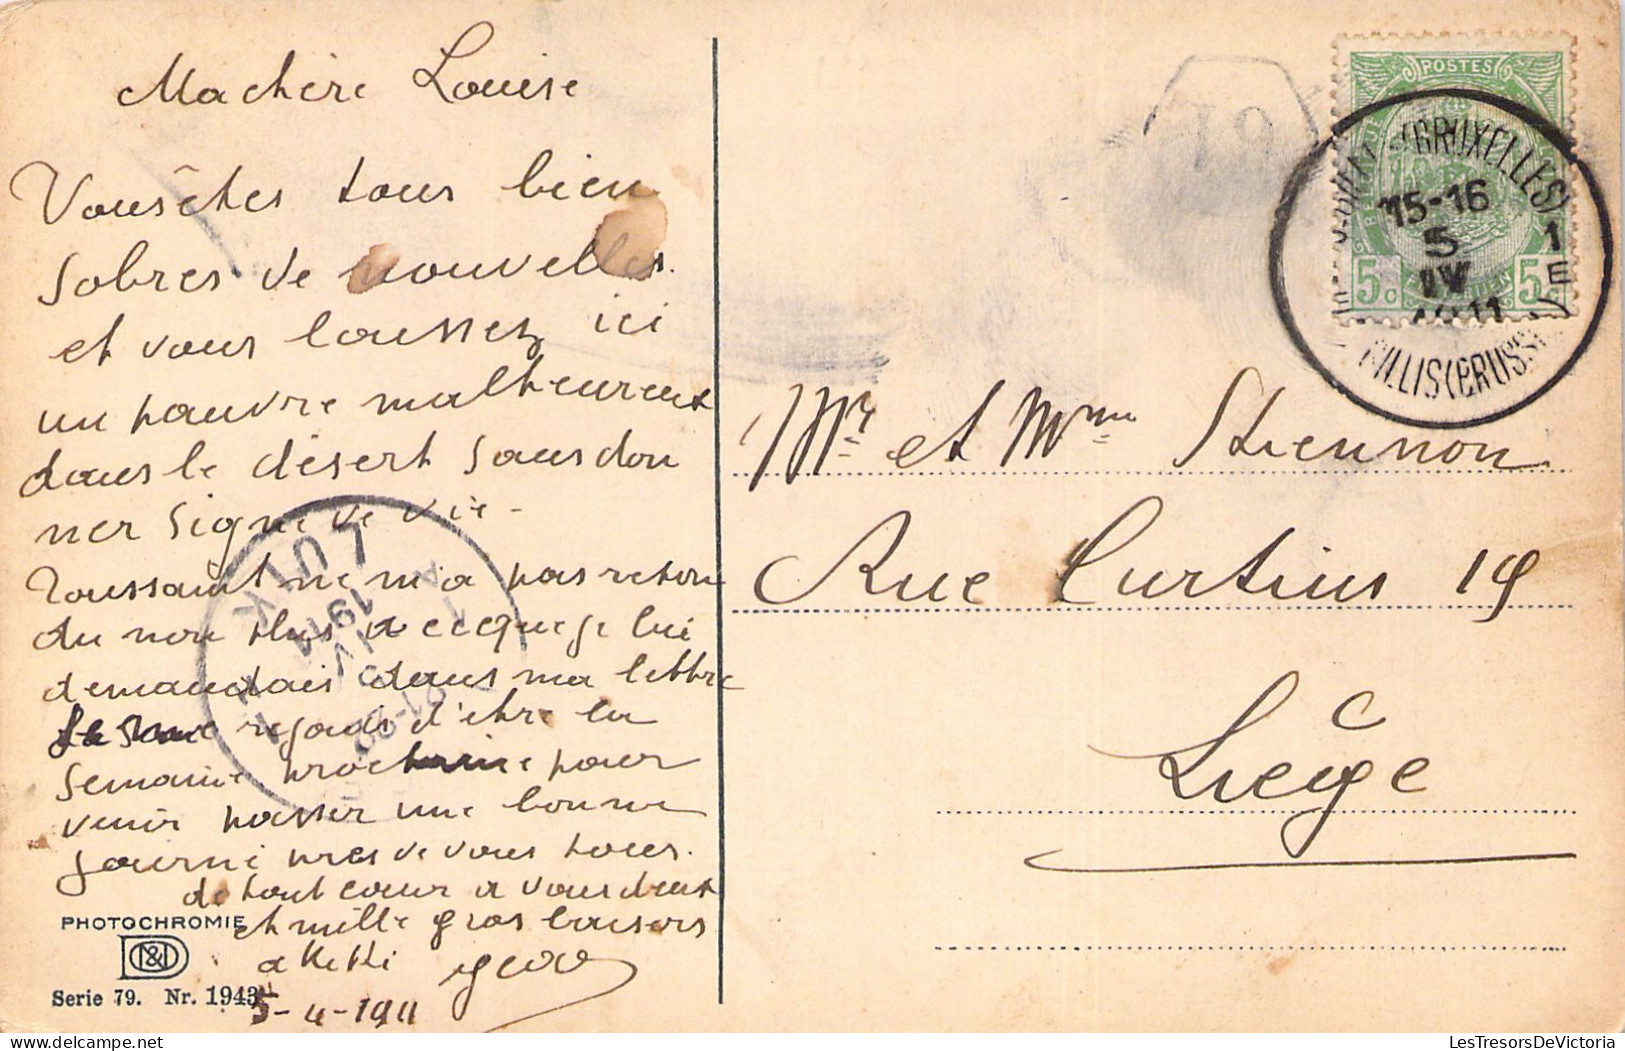 Ma chère Louise
Vous êtes tous bien
sobres de nouvelles.
et vous laussez ici
un pauvre malheureux
dans le désert sans don
ner signe de vie -
Toussaint ne m'a pas répon
du non plus a ce que je lui
demandais dans ma lettre
réjouis d'être la
semaine prochaine pour
venir passer une bonne
journé près de vous tous.
de tout cœur a vous deux
et mille gros baisers
a KiKi
5-4-1911
PHOTOCHROMIE
Serie 79. Nr. 1943
POSTES
5c 5c
(BRUXELLES) 1
15-16
5
IV
1911
GILLIS (BRUSSEL) 1E
LUIK
1911
IV
Mr et Mme Stiennon
Rue Curtius 19
Liège
LesTresorsDeVictoria.com